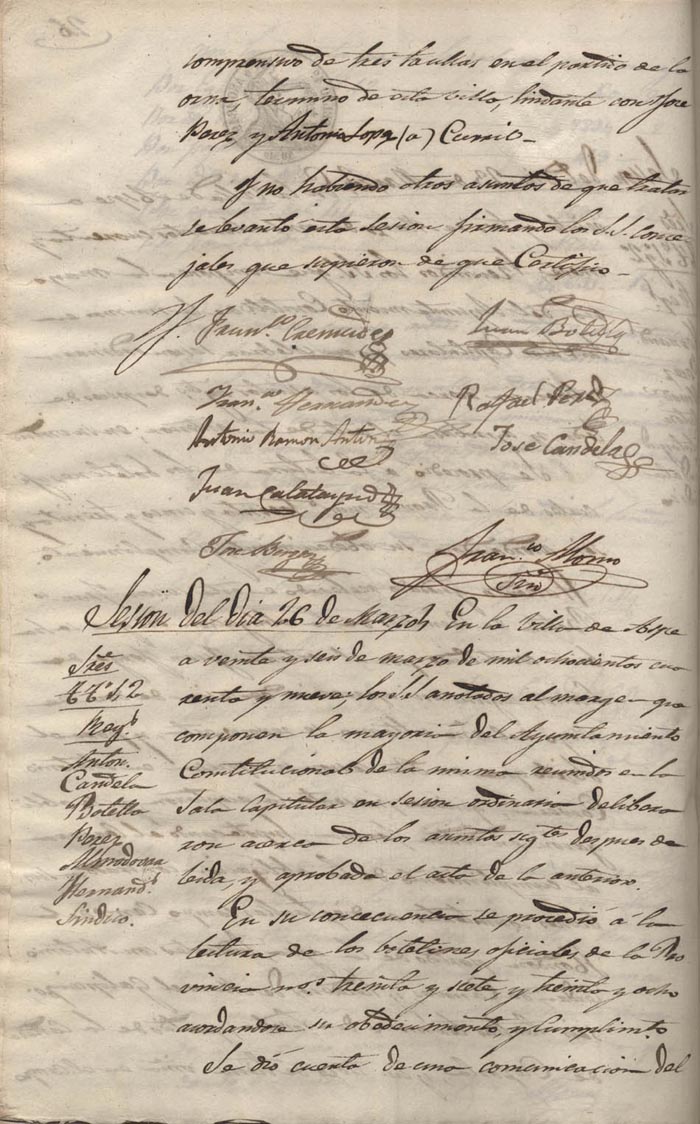 comprensivo de tres taullas en el partido de la
orna, termino de esta villa, lindante con Jose
Perez y Antonio Lopez (a) Curric-
Y no habiendo otros asuntos de que tratar
se levantó esta sesion firmando los SS. Conce
jales que supieron de que Certifico-
Fran.co Cremades
Juan Botella
Fran.co Hernandez
Rafael Perez
Antonio Ramon Anton
Jose Candela
Juan Calatayud
Jose Burgos
Fran.co Alonso
Srio
Sesion del dia 26 de Marzo
En la Villa de Aspe
a veinte y seis de marzo de mil ochocientos cua
renta y nueve; los SS anotados al margen que
componen la mayoria del Ayuntamiento
Constitucional de la misma reunidos en la
Sala Capitular en sesion ordinaria delibera
ron acerca de los asuntos sig.tes despues de
leida, y aprobada el acta de la anterior.
Sres
Reg.s
Anton.
Candela
Botella
Perez
Almodovar
Hernand.s
Sindico.
En su concecuencia se procedió á la
lectura de los boletines oficiales de la Pro
vincia nos. treinta y siete, y treinta y ocho
acordandose su obedecimiento, y Cumplim.to
Se dió cuenta de una comunicacion del